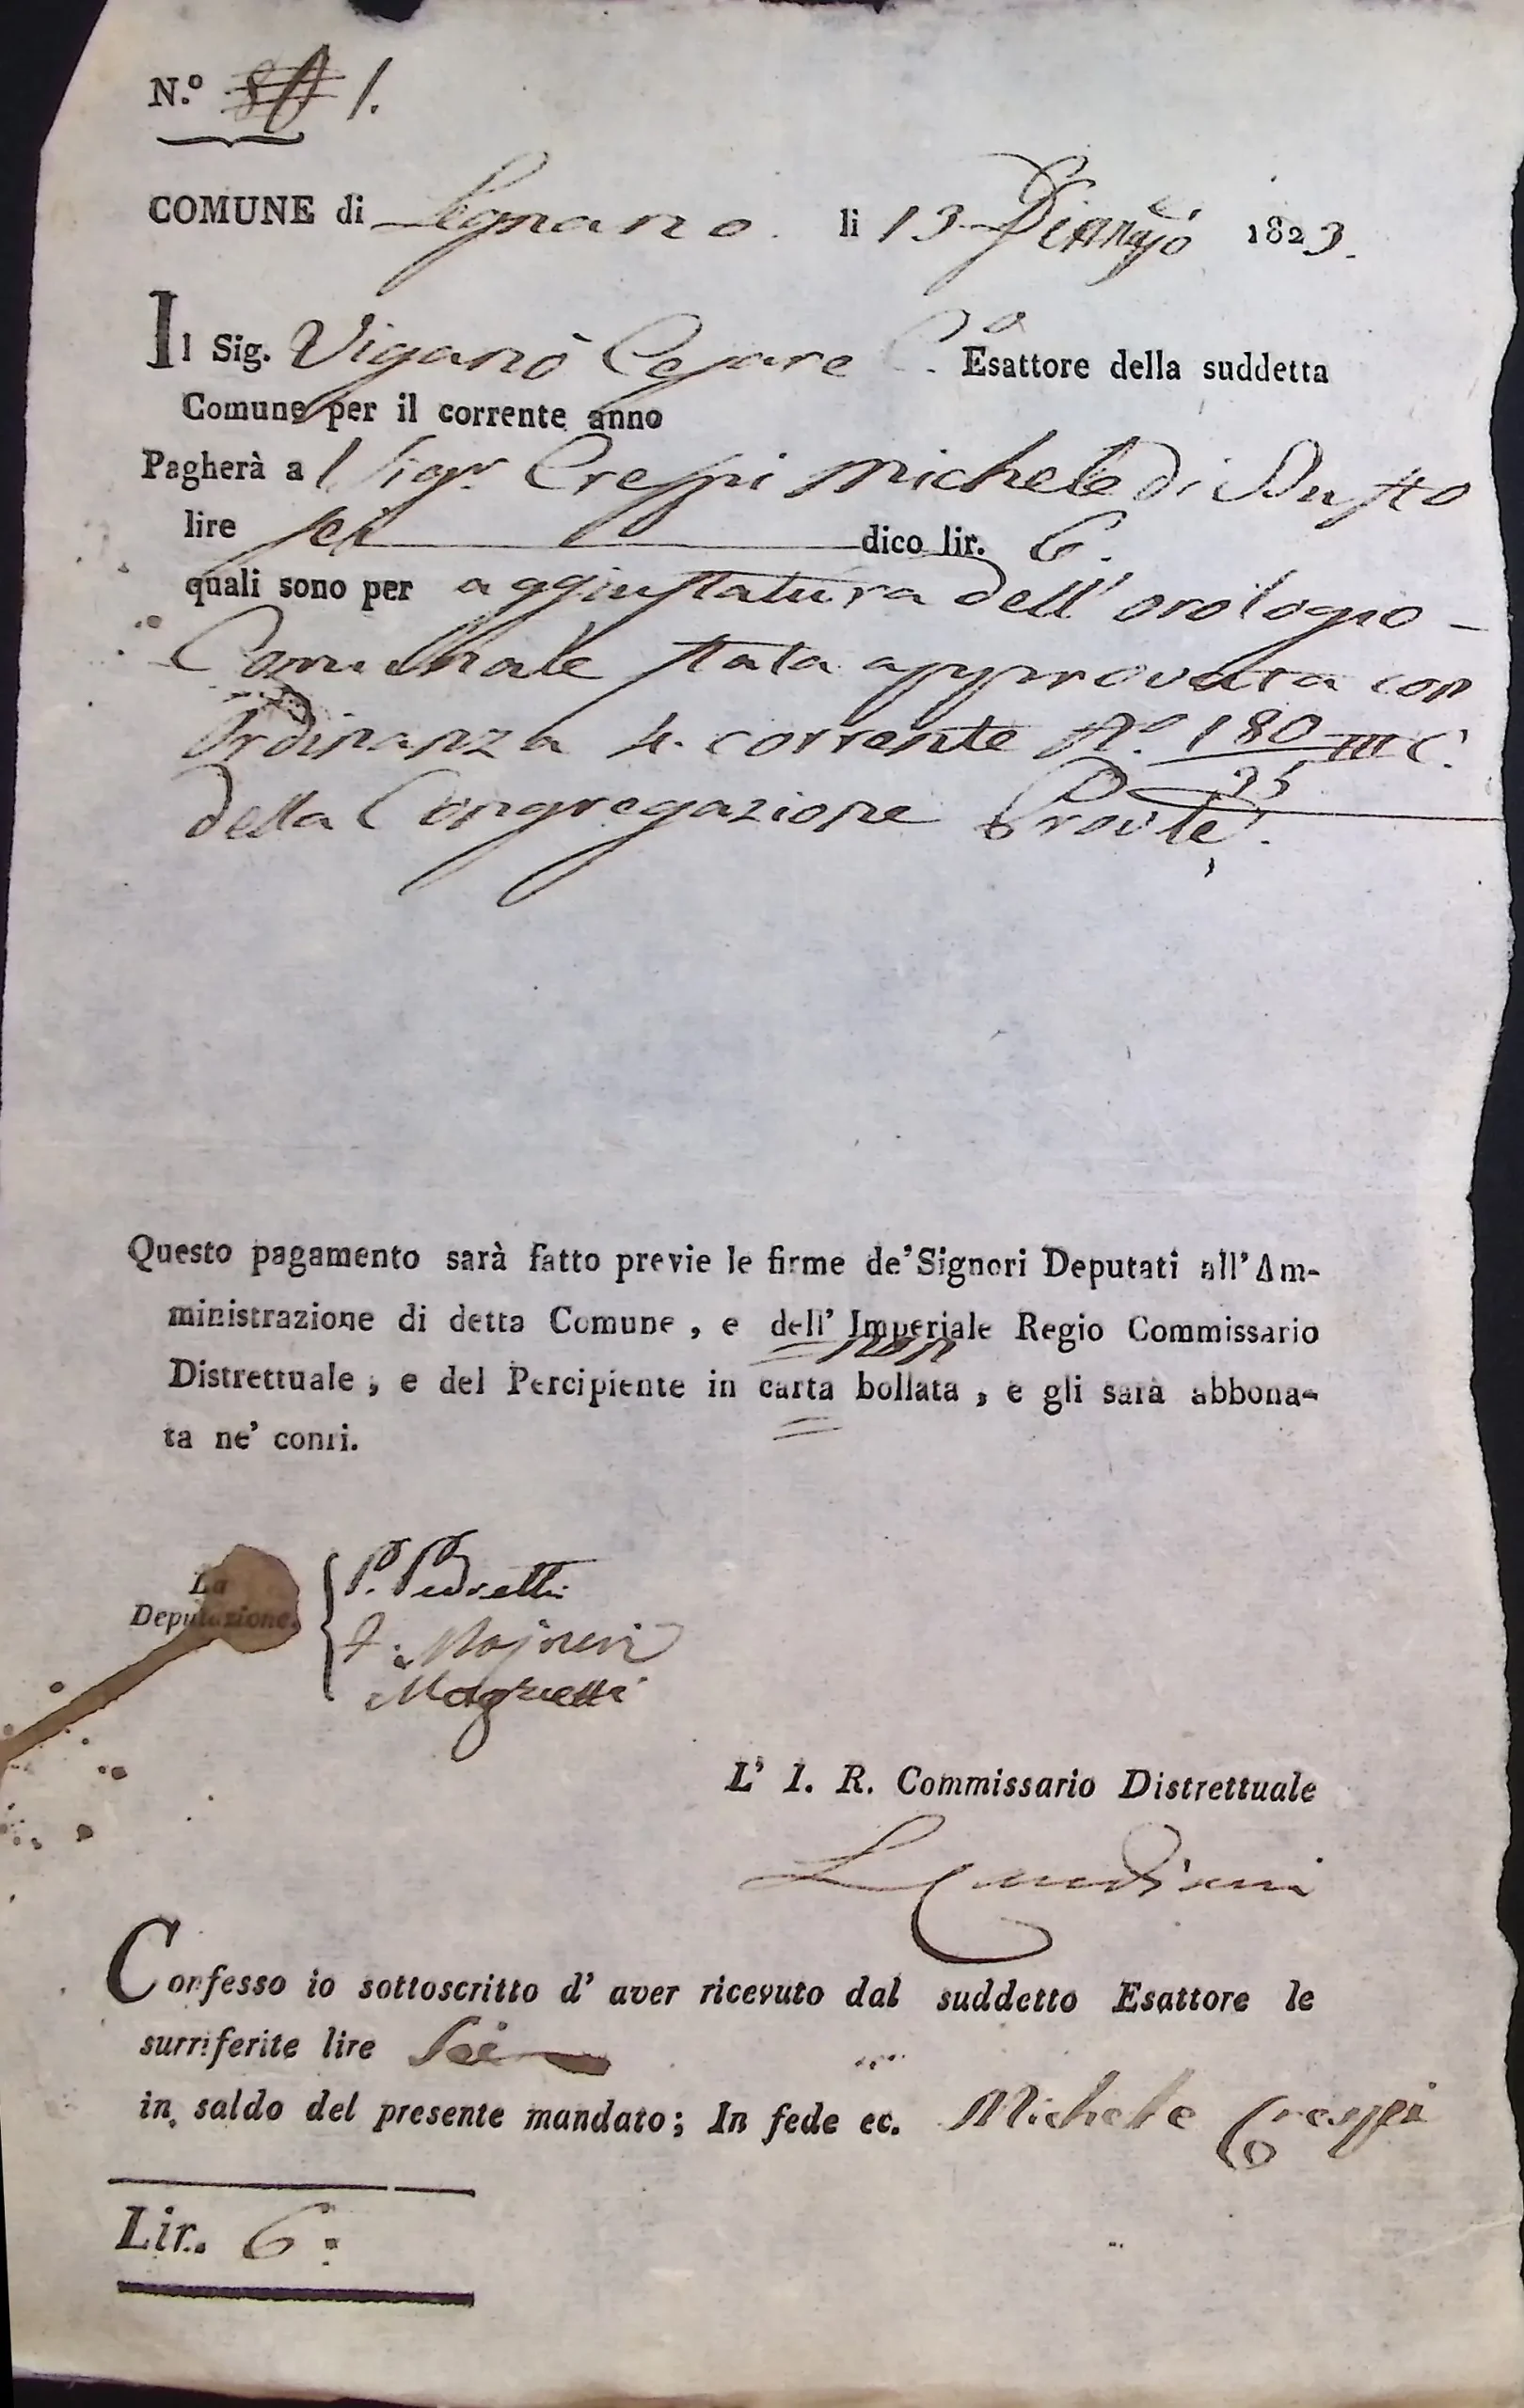 N.º 1.
COMUNE di Legnano. li 13 1823.
Il Sig. Viganò Cesare Esattore della suddetta
Comune per il corrente anno
Pagherà al Sigr. Crespi Michele di Busto
lire sei dico lir. 6.
quali sono per aggiustatura dell' orologio -
Comunale stata approvata con
Ordinanza 4. corrente Nº. 180
della Congregazione Provle.
Questo pagamento sarà fatto previe le firme de' Signori Deputati all' Am-
ministrazione di detta Comune, e dell' Imperiale Regio Commissario
non
Distrettuale, e del Percipiente in carta bollata, e gli sarà abbona-
ta ne' conti.
La
Deputazione.
P. Pedretti
L' I. R. Commissario Distrettuale
Confesso io sottoscritto d' aver ricevuto dal suddetto Esattore le
surriferite lire Sei
in saldo del presente mandato; In fede ec. Michele Crespi
Lir. 6: